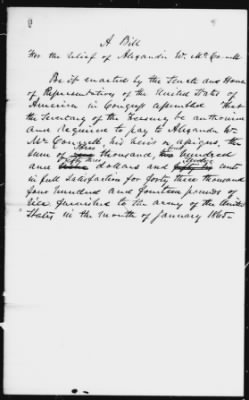 A Bill
For the relief of Alexander W. McConnell
Be it enacted by the Senate and House
of Representatives of the United States of
America in Congress assembled That
the Secretary of the Treasury be authorized
and required to pay to Alexander W.
McConnell, his heirs or assigns, the
sum of thousand, hundred
and dollars and cents
in full satisfaction for forty three thousand
four hundred and fourteen pounds of
rice furnished to the army of the United
States in the month of January 1865